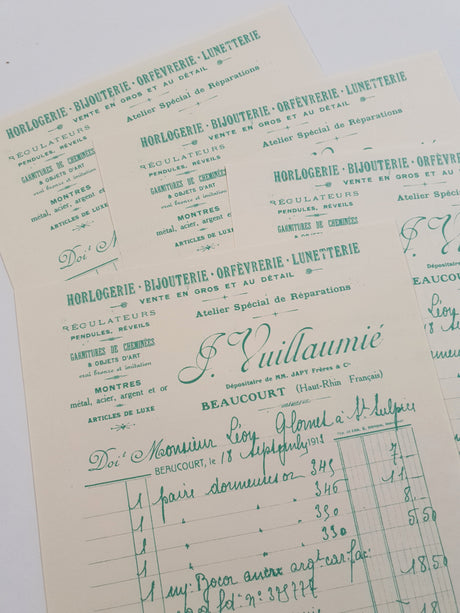 HORLOGERIE · BIJOUTERIE · ORFÈVRERIE · LUNETTERIE
VENTE EN GROS ET AU DÉTAIL
RÉGULATEURS
PENDULES, RÉVEILS
Atelier Spécial de Réparations
GARNITURES DE CHEMINÉES
& OBJETS D'ART
vrai bronze et imitation
MONTRES
métal, acier, argent et
ARTICLES DE LUXE
Doit M
HORLOGERIE · BIJOUTERIE · ORFÈVRERIE · LUNETTERIE
VENTE EN GROS ET AU DÉTAIL
RÉGULATEURS
PENDULES, RÉVEILS
Atelier Spécial de Réparations
GARNITURES DE CHEMINÉES
& OBJETS D'ART
vrai bronze et imitation
MONTRES
métal, acier, argent et
ARTICLES DE LUXE
HORLOGERIE · BIJOUTERIE · ORFÈVRE
VENTE EN GROS ET AU
RÉGULATEURS
PENDULES, RÉVEILS
Atelier Spécial de
GARNITURES DE CHEMINÉES
J. Vu
Dépositaire de MM. JA
BEAUCOURT
HORLOGERIE · BIJOUTERIE · ORFÈVRERIE · LUNETTERIE
VENTE EN GROS ET AU DÉTAIL
RÉGULATEURS
PENDULES, RÉVEILS
Atelier Spécial de Réparations
GARNITURES DE CHEMINÉES
& OBJETS D'ART
vrai bronze et imitation
J. Vuillaumié
MONTRES
métal, acier, argent et or
Dépositaire de MM. JAPY Frères & Cie
ARTICLES DE LUXE
BEAUCOURT (Haut-Rhin Français)
Doit Monsieur Léon à St Sulpice
BEAUCOURT, le 18 191
1 paire dormeuses or 345 7
1 " " 346 11
1 " " 330 8
1 " " 330 5.50
1
18.50